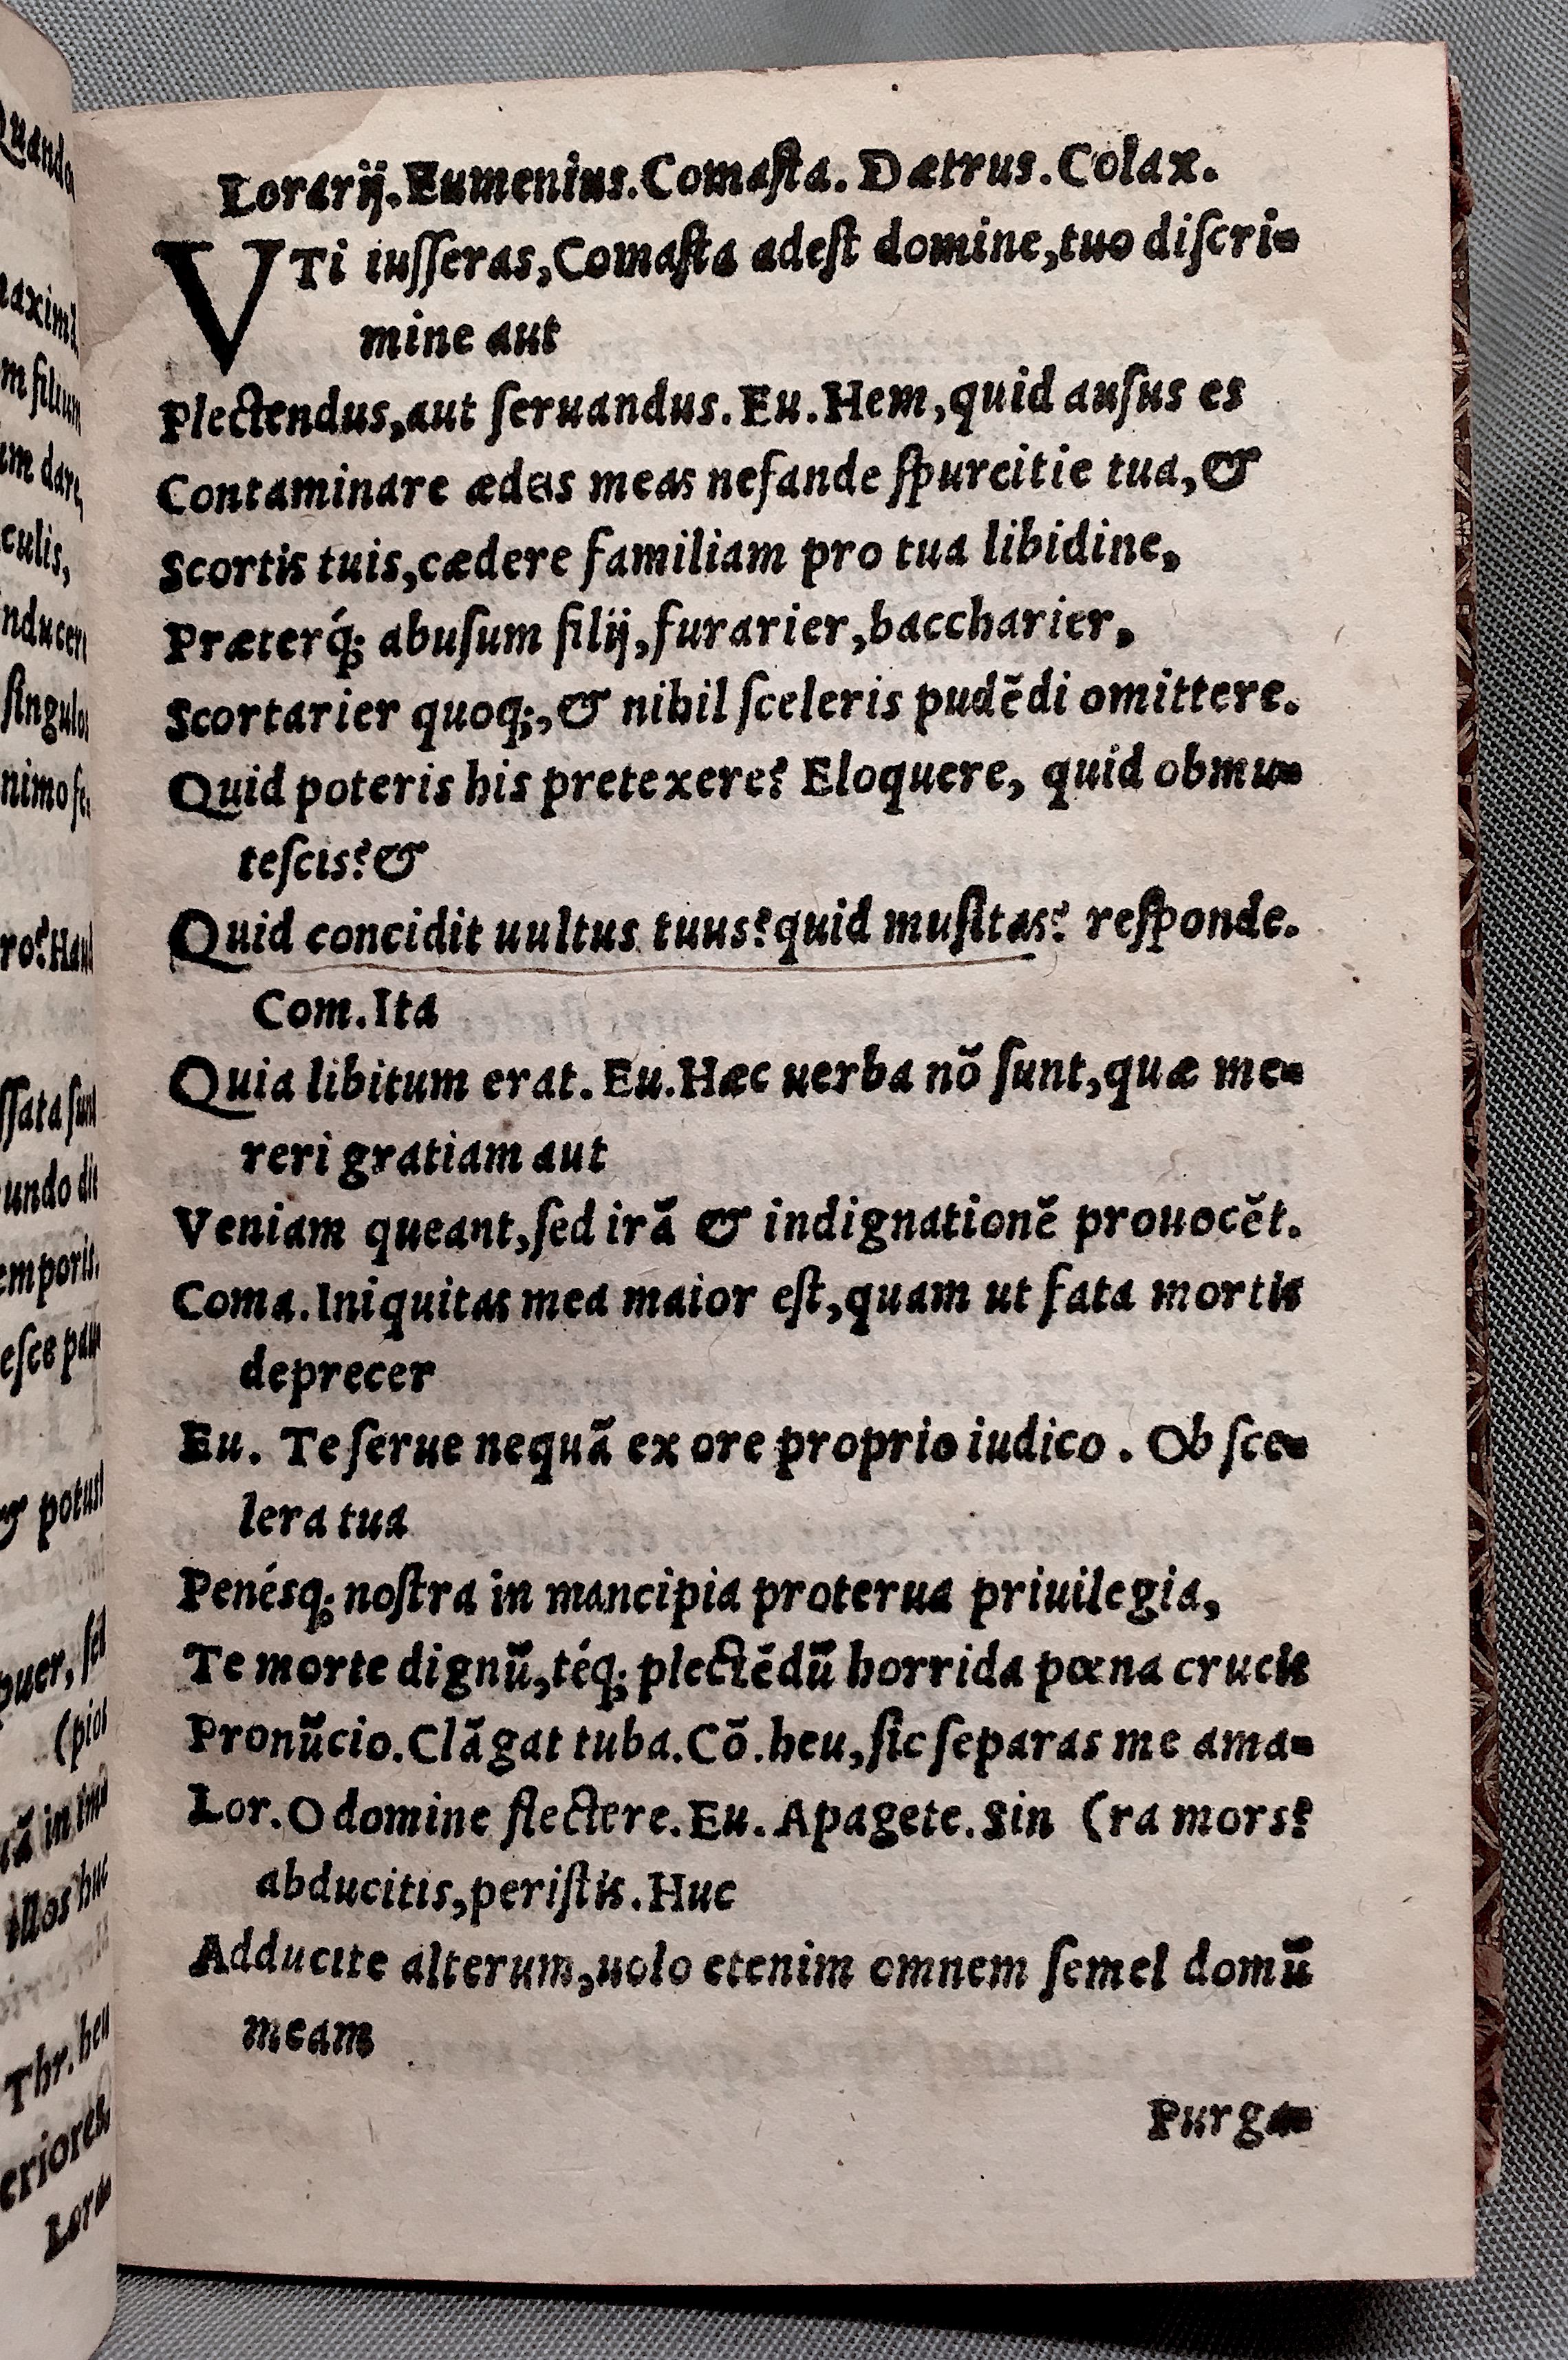 Lorarij. Eumenius. Comaſta. Dætrus. Colax.
VTi iuſſeras, Comaſta adeſt domine, tuo diſcri-
mine aut
Plectendus, aut ſeruandus. Eu. Hem, quid auſus es
Contaminare ædeis meas nefande ſpurcitie tua, &
Scortis tuis, cædere familiam pro tua libidine,
Præterq́; abuſum filij, furarier, baccharier,
Scortarier quoq;, & nihil ſceleris pudẽdi omittere.
Quid poteris his pretexere? Eloquere, quid obmu-
teſcis? &
Quid concidit uultus tuus? quid muſitas? reſponde.
Com. Ita
Quia libitum erat. Eu. Hæc uerba nõ ſunt, quæ me-
reri gratiam aut
Veniam queant, ſed irã & indignationẽ prouocẽt.
Coma. Iniquitas mea maior eſt, quam ut fata mortis
deprecer
Eu. Te ſerue nequã ex ore proprio iudico. Ob ſce-
lera tua
Penésq; noſtra in mancipia proterua priuilegia,
Te morte dignũ, téq; plectẽdũ horrida pœna crucis
Pronũcio. Clãgat tuba. Cõ. heu, ſic ſeparas me ama-
Lor. O domine flectere. Eu. Apagete. Sin (ra mors?
abducitis, periſtis. Huc
Adducite alterum, uolo etenim omnem ſemel domũ
meam
Purga-